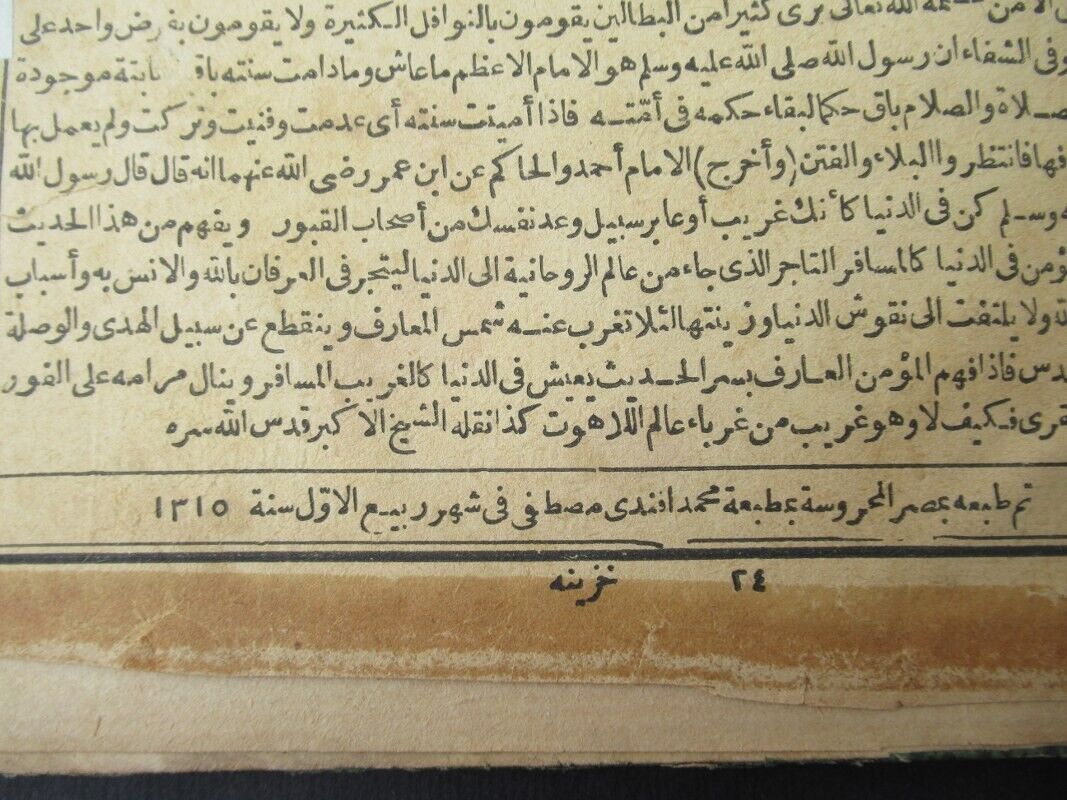 الله تعالى يرى كثيرا من البطالين يقومون بالنوافل الكثيرة ولا يقومون بفرض واحد على
وفى الشفاء ان رسول الله صلى الله عليه وسلم هو الامام الاعظم ما عاش وما دامت سنته موجودة
صلاة والصلام باق حكما لبقاء حكمه فى أمته فاذا أميتت سنته أى عدمت وفنيت وتركت ولم يعمل بها
فها فانتظروا البلاء والفتن (وأخرج) الامام أحمد والحاكم عن ابن عمر رضى الله عنهما انه قال قال رسول الله
ه وسلم كن فى الدنيا كأنك غريب أو عابر سبيل وعد نفسك من أصحاب القبور ويفهم من هذا الحديث
ؤمن فى الدنيا كالمسافر التاجر الذى جاء من عالم الروحانية الى الدنيا ليتجر فى العرفان بالله والانس به وأسباب
ولا يلتفت الى نقوش الدنيا وزينتها لئلا تغرب عنه شمس المعارف وينقطع عن سبيل الهدى والوصلة
دس فاذا فهم المؤمن العارف بسر الحديث يعيش فى الدنيا كالغريب المسافر وينال مرامه على الفور
قرى فكيف لا وهو غريب من غرباء عالم اللاهوت كذا نقله الشيخ الاكبر قدس الله سره
تم طبعه بمصر المحروسة بمطبعة محمد افندى مصطفى فى شهر ربيع الاول سنة ١٣١٥
٢٤ خزينه